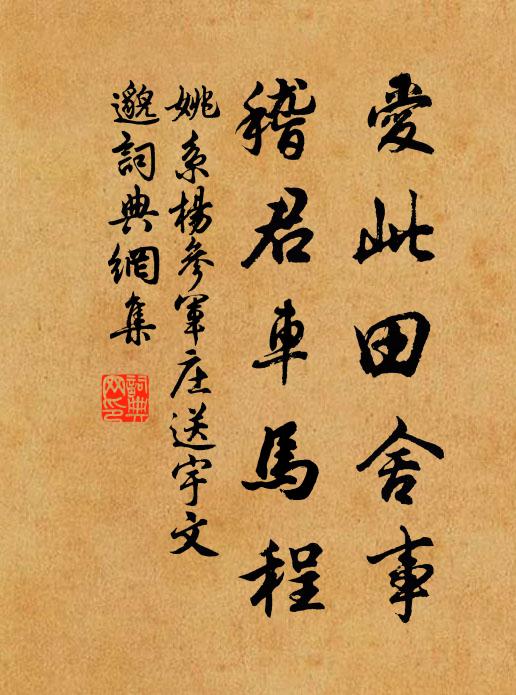 愛此田舍事
稽君車馬程
姚系楊參軍庄送宇文
邈詞典網集
詞典
网印